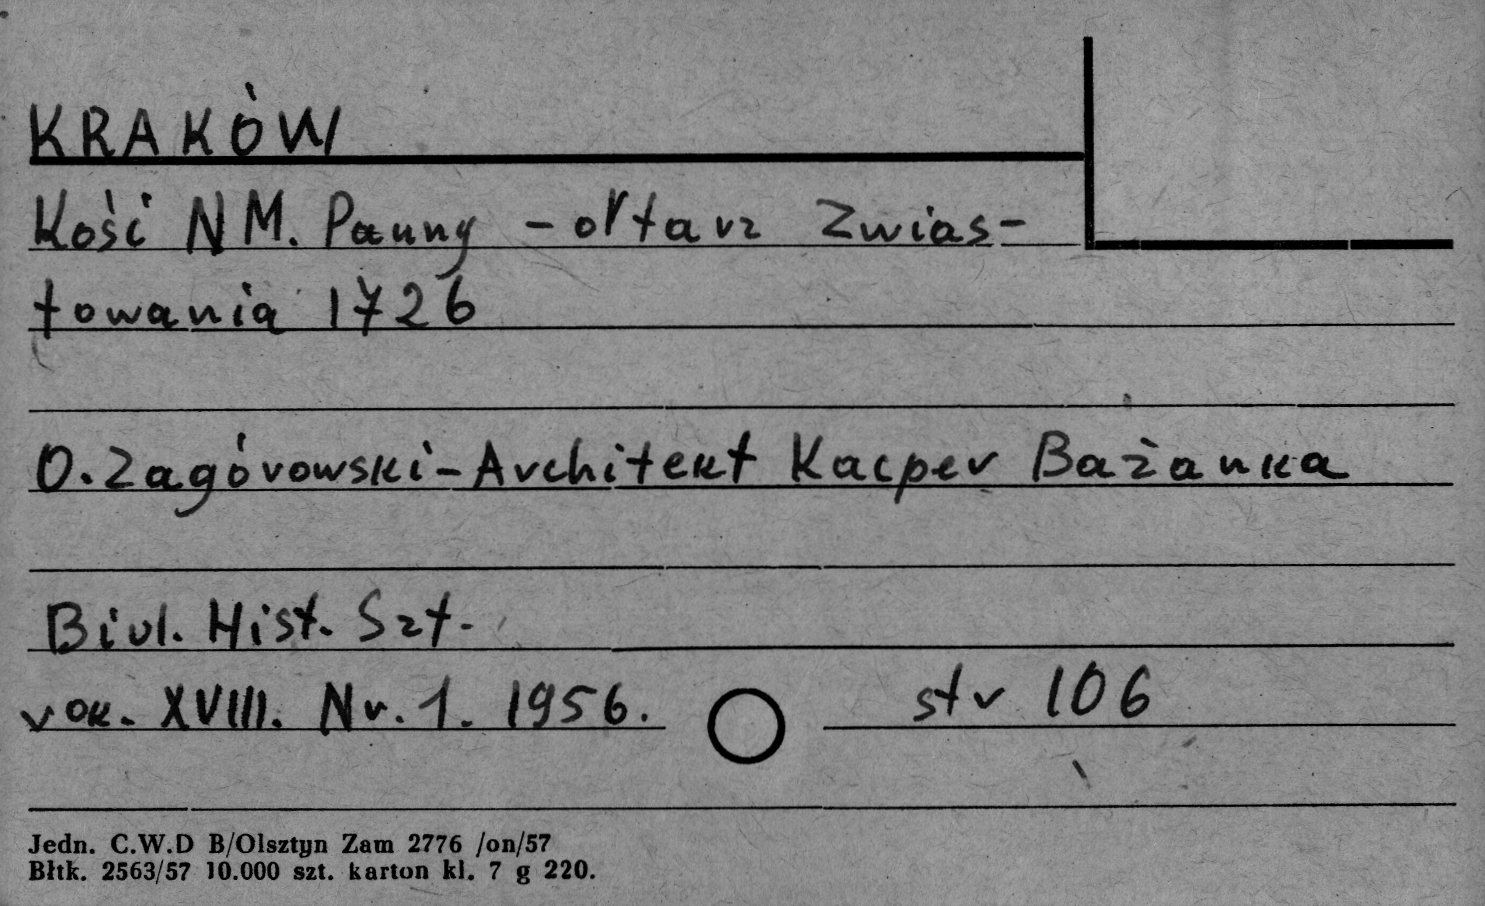 KRAKÓW
Kości NM. Panny - ołtarz Zwias-
towania 1726
O. Zagórowski - Architekt Kacper Bażanka
Biul. Hist. Szt.
rok. XVIII. Nr. 1. 1956. str 106
Jedn. C.W.D B/Olsztyn Zam 2776 /on/57
Błtk. 2563/57 10.000 szt. karton kl. 7 g 220.